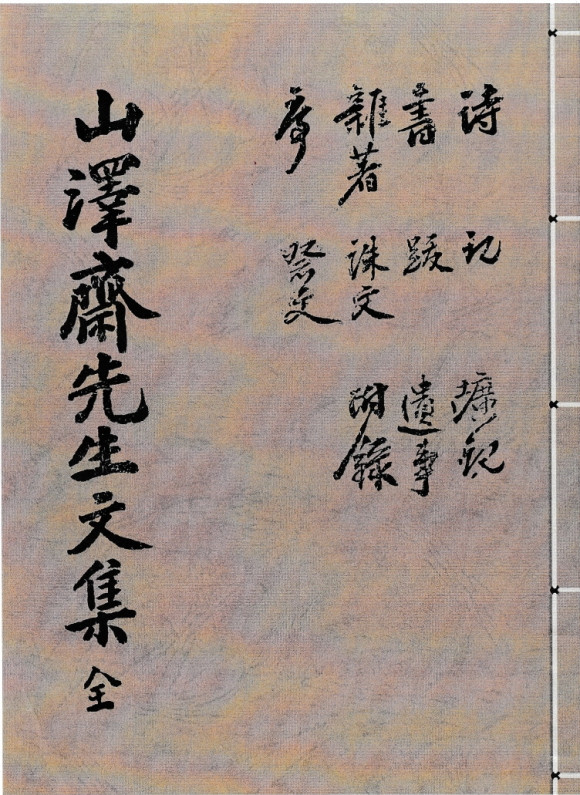 詩 記 壙記
書 跋 遺事
雜著 誄文 附錄
序 祭文
山澤齋先生文集 全